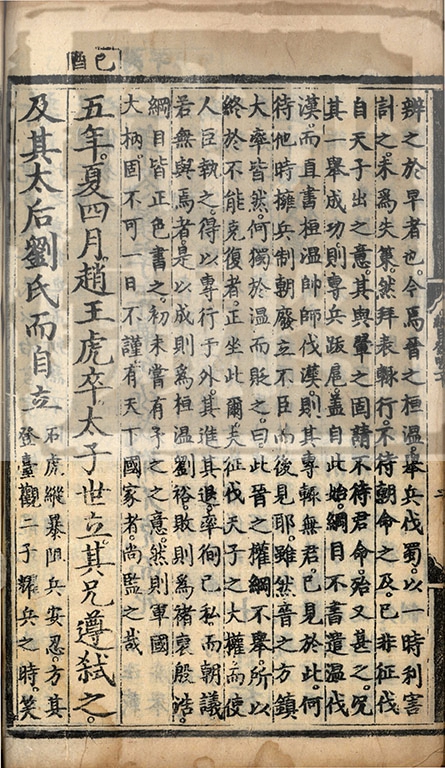 己酉
辨之於早者也。今焉晉之桓溫舉兵伐蜀。以一時利害
計之。未爲失策。然拜表輒行。不待朝命之及。已非征伐
自天子出之意。其與鞏之固請不待君命。殆又甚之。況
其一舉成功。則專兵跋扈蓋自此始。綱目不書遣溫伐
漢。而直書桓溫帥師伐漢。則其專輒無君。已見於此。何
待他時擁兵制朝廢立不臣而後見耶。雖然晉之方鎮
大率皆然。何獨於溫而貶之。曰此晉之權綱不舉。所以
終於不能克復者。正坐此爾。夫征伐天子之大權。而使
人臣執之。得以專行于外。其進其退。率徇己私而朝議
若無與焉者。是以成則爲桓溫劉裕。敗則爲褚裒殷浩。
綱目皆正色書之。初未嘗有予之之意。然則軍國
大柄。固不可一日不謹。有天下國家者。尚監之哉
五年。夏四月。趙王虎卒。太子世立。其兄遵弑之。
及其太后劉氏而自立
石虎縱暴阻兵安忍。方其
登臺觀二子耀兵之時。笑